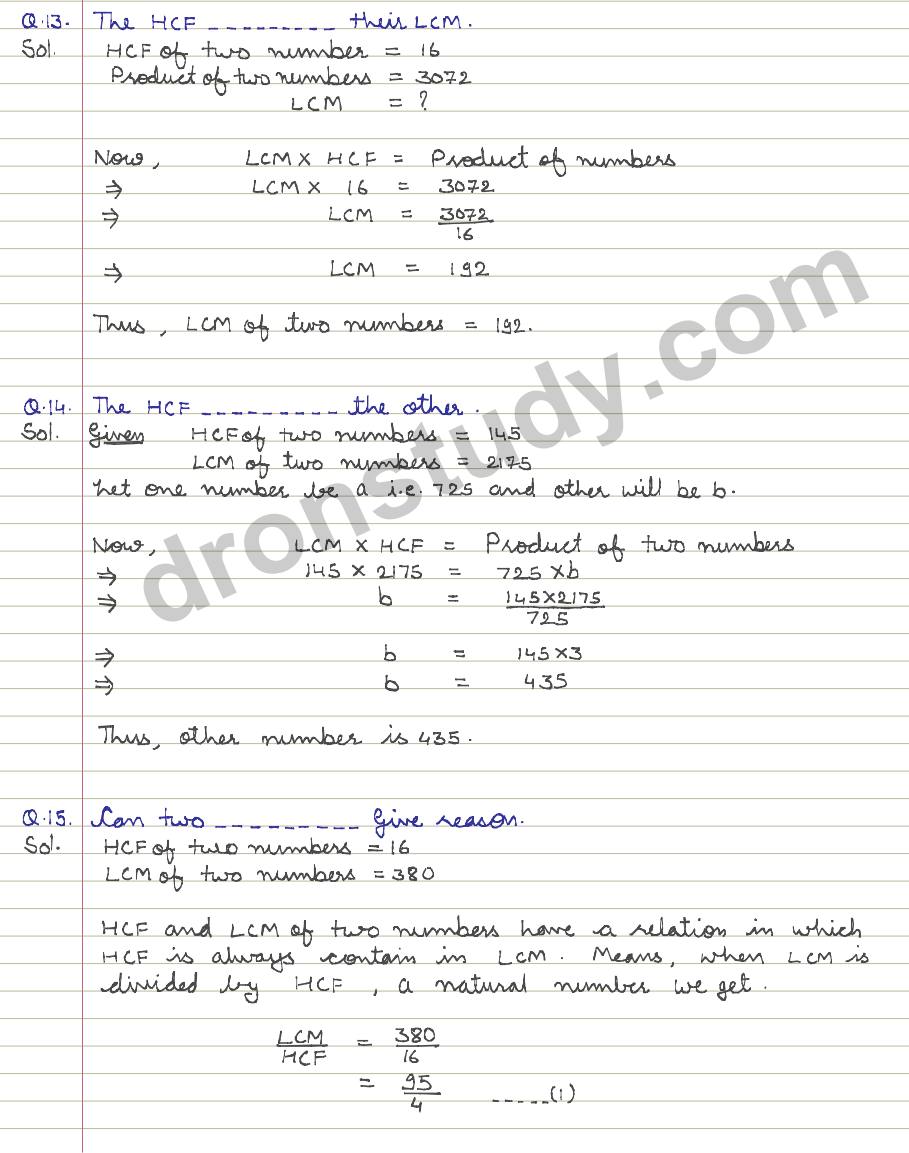 Q.13. The HCF _________ their LCM.
Sol. HCF of two number = 16
Product of two numbers = 3072
LCM = ?
Now, LCM X HCF = Product of numbers
⇒ LCM X 16 = 3072
⇒ LCM = 3072/16
⇒ LCM = 192
Thus, LCM of two numbers = 192.
Q.14. The HCF _________ the other.
Sol. Given HCF of two numbers = 145
LCM of two numbers = 2175
Let one number be a i.e. 725 and other will be b.
Now, LCM X HCF = Product of two numbers
⇒ 145 X 2175 = 725 X b
⇒ b = 145X2175/725
⇒ b = 145 X 3
⇒ b = 435
Thus, other number is 435.
Q.15. Can two _________ Give reason.
Sol. HCF of two numbers = 16
LCM of two numbers = 380
HCF and LCM of two numbers have a relation in which
HCF is always contain in LCM. Means, when LCM is
divided by HCF, a natural number we get.
LCM/HCF = 380/16
= 95/4 -----(1)
dronstudy.com